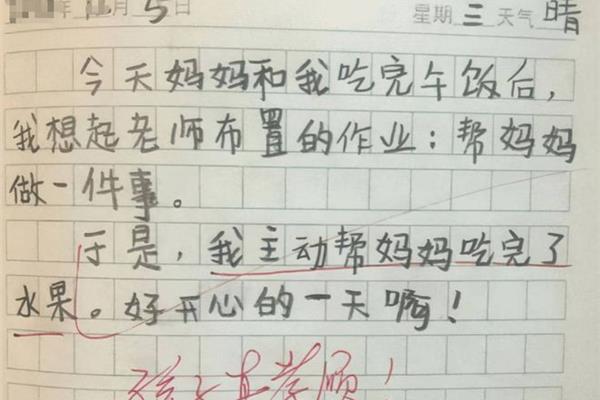 年 月 5日 星期 三 天气 晴
今天妈妈和我吃完午饭后，
我想起老师布置的作业：帮妈妈
做一件事。
于是，我主动帮妈妈吃完了
水果。好开心的一天啊！
孩子真孝顺！